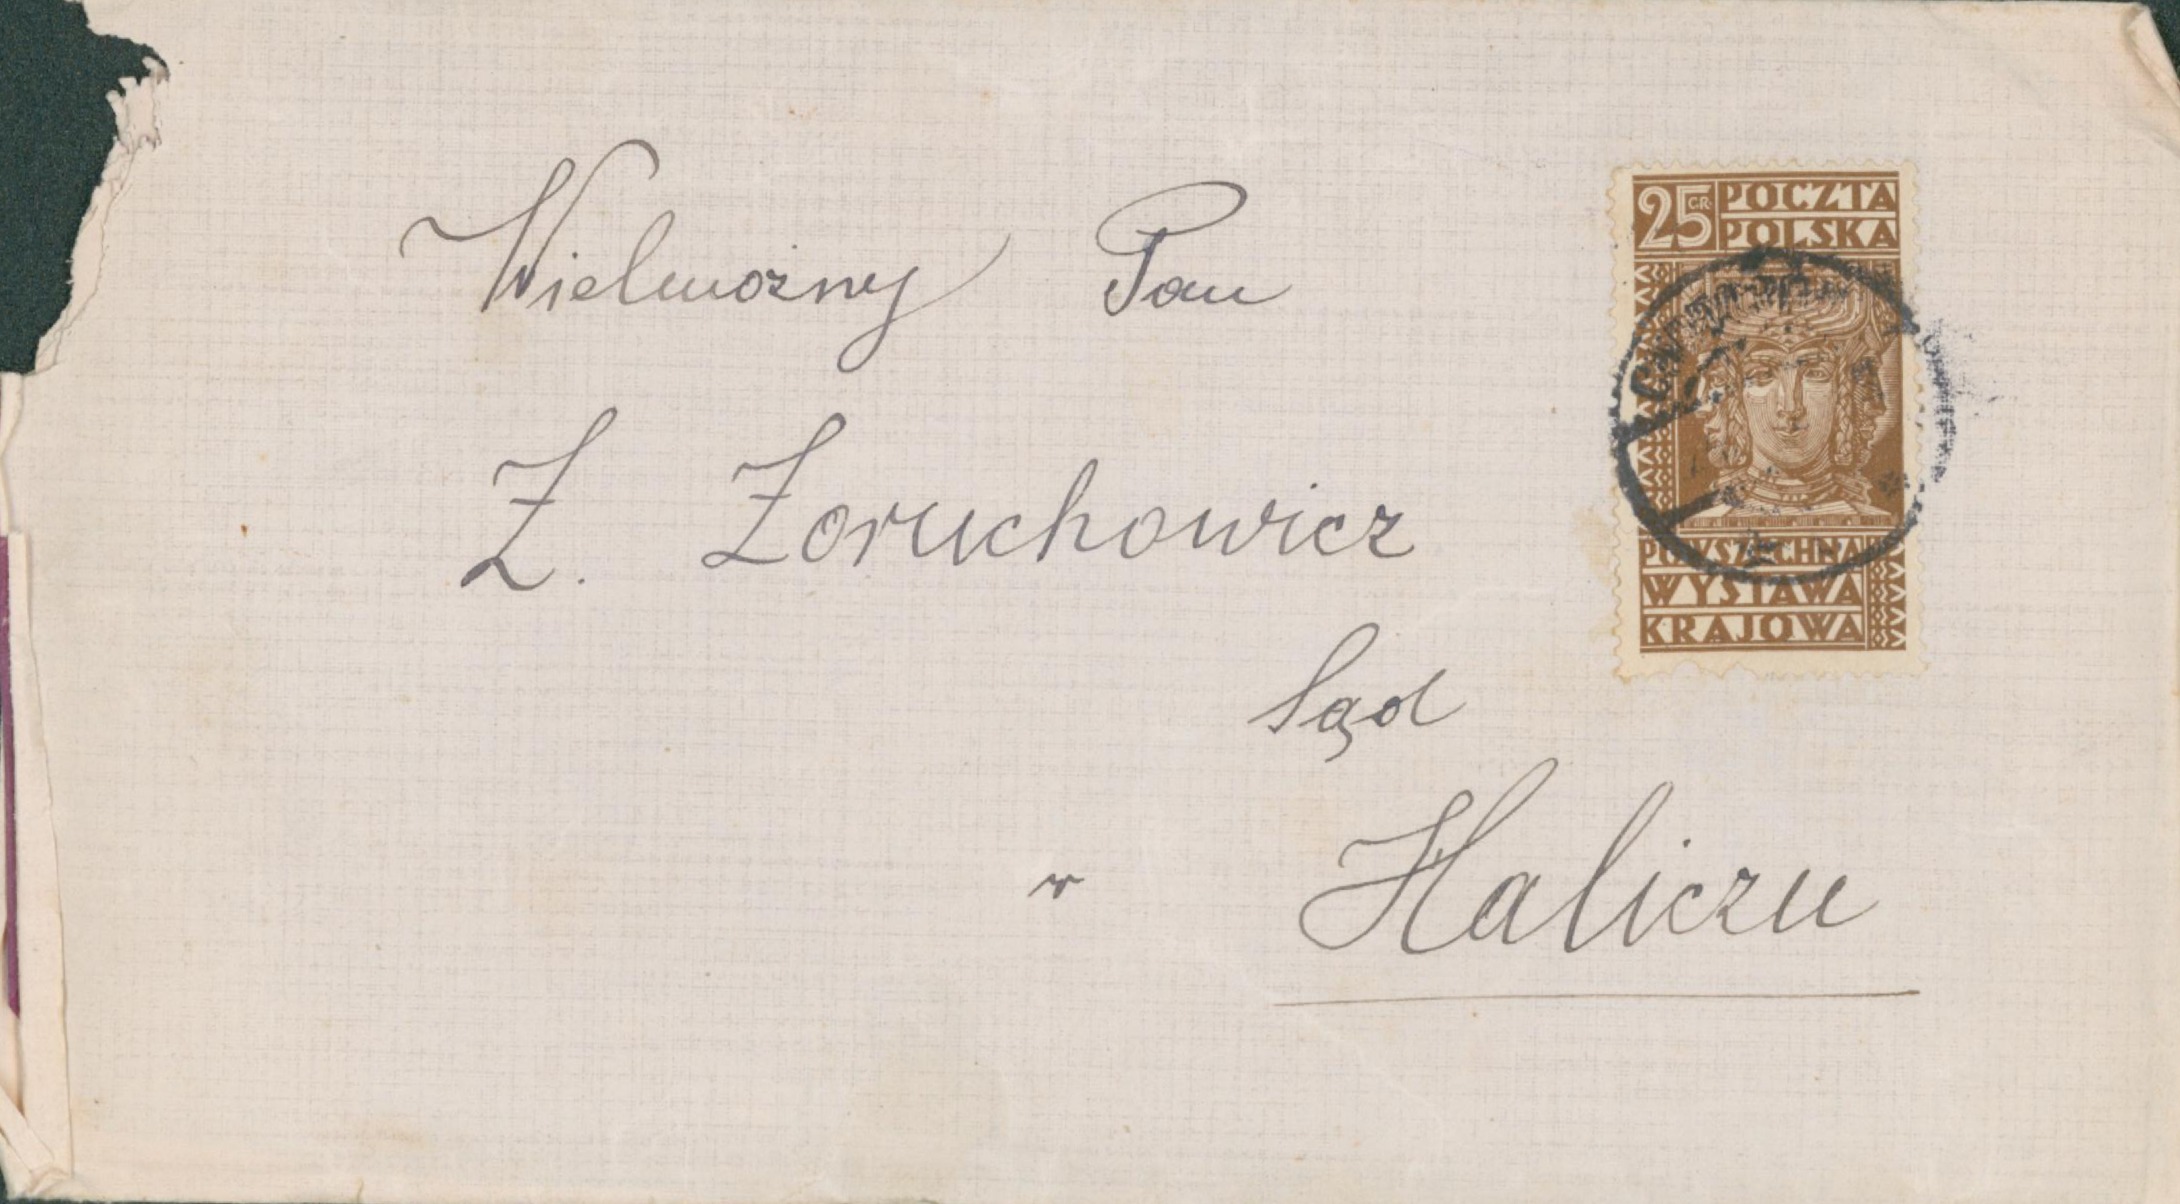 Wielmożny Pan
Z. Zoruchowicz
Sąd
w Haliczu
25 GR. POCZTA
POLSKA
POWSZECHNA
WYSTAWA
KRAJOWA